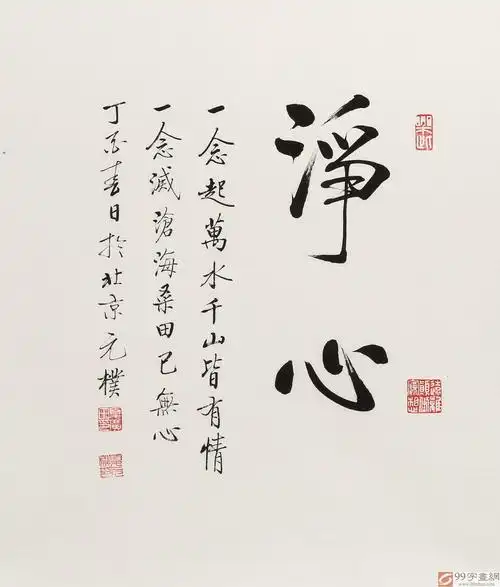 淨心
遠離顛倒夢想
一念起萬水千山皆有情
一念滅滄海桑田已無心
丁酉春日於北京元樸
99字畫網